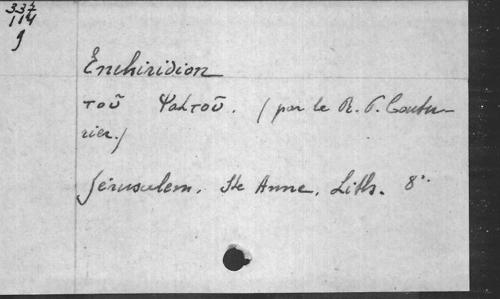 337
114
9
Enchiridion
τοῦ Ψαλτοῦ. (par le R. P. Coutu-
rier.)
Jérusalem. Ste Anne. Lith. 8°.